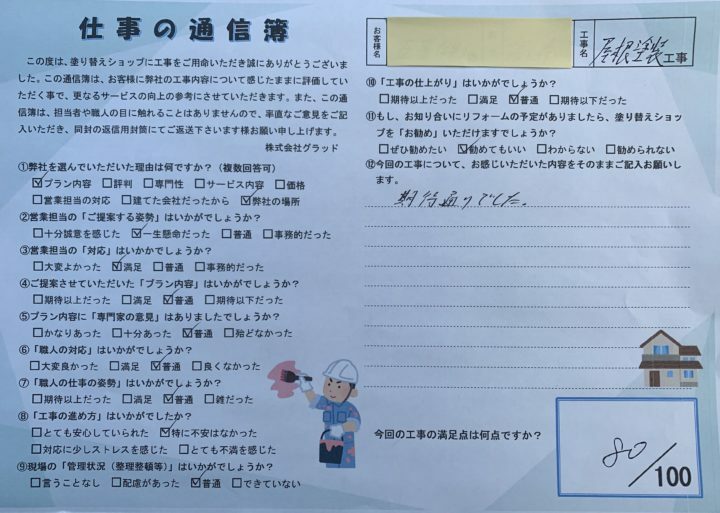 仕事の通信簿
この度は、塗り替えショップに工事をご用命いただき誠にありがとうございま
した。この通信簿は、お客様に弊社の工事内容について感じたままに評価してい
ただく事で、更なるサービスの向上の参考にさせていただきます。また、この通
信簿は、担当者や職人の目に触れることはありませんので、率直なご意見をご記
入いただき、同封の返信用封筒にてご返送下さいます様お願い申し上げます。
株式会社グラッド
①弊社を選んでいただいた理由は何ですか？（複数回答可）
☑プラン内容 □評判 □専門性 □サービス内容 □価格
□営業担当の対応 □建てた会社だったから ☑弊社の場所
②営業担当の「ご提案する姿勢」はいかがでしょうか？
□十分誠意を感じた ☑一生懸命だった □普通 □事務的だった
③営業担当の「対応」はいかかでしょうか？
□大変よかった ☑満足 □普通 □事務的だった
④ご提案させていただいた「プラン内容」はいかがでしょうか？
□期待以上だった □満足 ☑普通 □期待以下だった
⑤プラン内容に「専門家の意見」はありましたでしょうか？
□かなりあった □十分あった ☑普通 □殆どなかった
⑥「職人の対応」はいかがでしょうか？
□大変良かった □満足 ☑普通 □良くなかった
⑦「職人の仕事の姿勢」はいかがでしょうか？
□期待以上だった □満足 ☑普通 □雑だった
⑧「工事の進め方」はいかがでしたか？
□とても安心していられた ☑特に不安はなかった
□対応に少しストレスを感じた □とても不満を感じた
⑨現場の「管理状況（整理整頓等）」はいかがでしょうか？
□言うことなし □配慮があった ☑普通 □できていない
お客様名
工事名
屋根塗装工事
⑩「工事の仕上がり」はいかがでしょうか？
□期待以上だった □満足 ☑普通 □期待以下だった
⑪もし、お知り合いにリフォームの予定がありましたら、塗り替えショッ
プを「お勧め」いただけますでしょうか？
□ぜひ勧めたい ☑勧めてもいい □わからない □勧められない
⑫今回の工事について、お感じいただいた内容をそのままご記入お願いし
ます。
期待通りでした。
今回の工事の満足点は何点ですか？
80/100